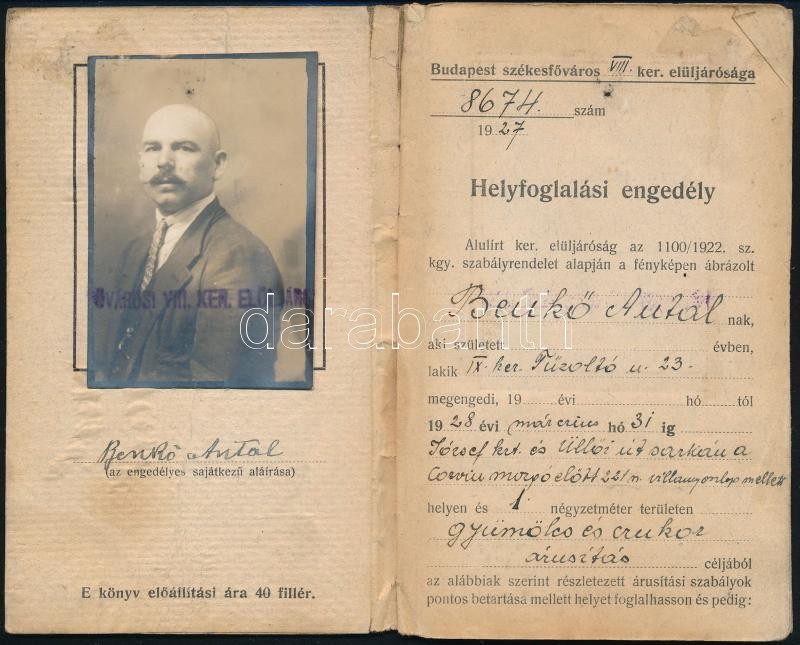 ŐVÁROSI VIII. KER. ELŐLJÁR
Benkő Antal
(az engedélyes sajátkezű aláírása)
E könyv előállítási ára 40 fillér.
Budapest székesfőváros VIII. ker. elüljárósága
8674. szám
1927.
Helyfoglalási engedély
Alulírt ker. elüljáróság az 1100/1922. sz.
kgy. szabályrendelet alapján a fényképen ábrázolt
Benkő Antal nak,
aki született évben,
lakik IX. ker. Tűzoltó u. 23.
megengedi, 19 évi hó tól
1928 évi március hó 31 ig
József krt. és Üllői út sarkán a
Corvin mozgó előtt 221 n. villanyoszlop mellett
helyen és 1 négyzetméter területen
gyümölcs és cukor
árusítás céljából
az alábbiak szerint részletezett árusítási szabályok
pontos betartása mellett helyet foglalhasson és pedig:
darabanth